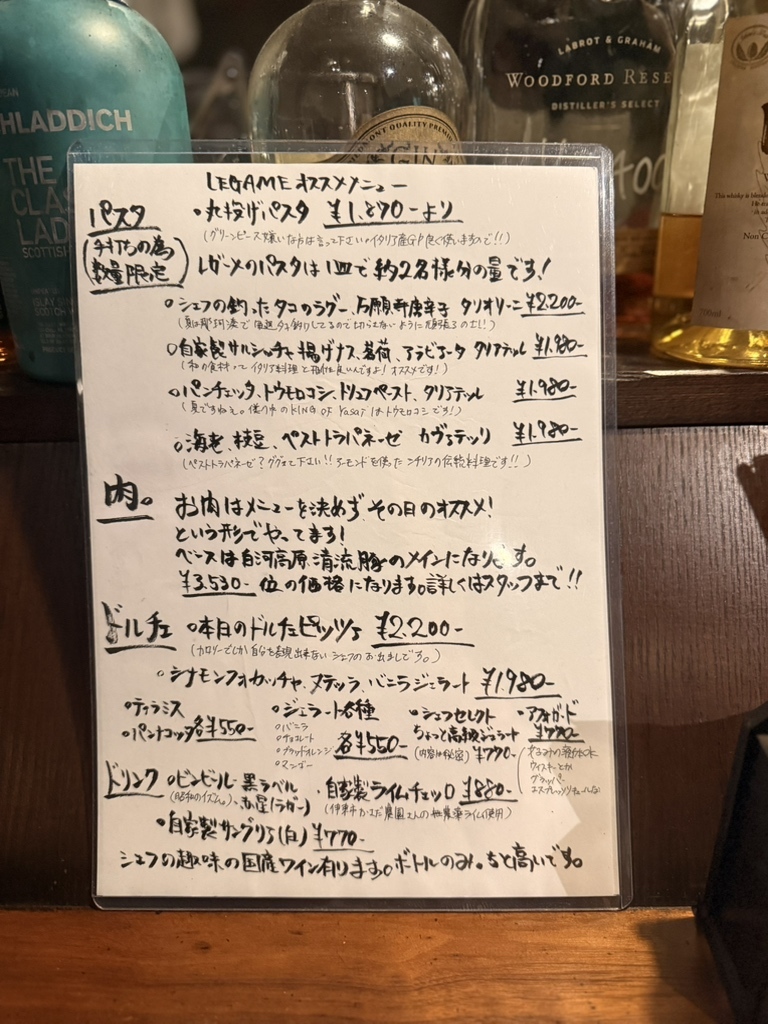 HLADDICH
THE
CLAS
LAD
SCOTTISH
MONT QUALITY PREMI
GIN
LABROT & GRAHAM
WOODFORD RESE
DISTILLER'S SELECT
LEGAMEオススメメニュー
パスタ
(手打ちの為
数量限定)
・丸投げパスタ ¥1.870-より
(グリーンピース嫌いな方は言って下さい。イタリア産GP良く使いますので!!)
レガーメのパスタは1皿で約2名様分の量です!
○シェフの釣ったタコのラグー、万願寺唐辛子 タリオリーニ ¥2.200-
○自家製サルシッチャ、揚げナス、茗荷、アラビアータ タリアテッレ ¥1.980-
(和の食材ってイタリア料理と相性良いんですよ!オススメです!)
○パンチェッタ、トウモロコシ、トリュフペースト、タリアテッレ ¥1.980-
(夏ですねぇ。僕の中のKING OF Yasaiはトウモロコシです!)
○海老、枝豆、ペストトラパネーゼ カヴァテッリ ¥1.980-
(ペストトラパネーゼ?ググって下さい!!アーモンドを使ったシチリアの伝統料理です!!)
肉。
お肉はメニューを決めず、その日のオススメ!
という形でやってます!
ベースは白河高原清流豚のメインになります。
¥3.530-位の価格になります。詳しくはスタッフまで!!
ドルチェ
○本日のドルチェピッツァ ¥2.200-
(カロリーでしか自分を表現出来ないシェフのお出ましです。)
・シナモンフォカッチャ、ヌテッラ、バニラジェラート ¥1.980-
・ティラミス
・パンナコッタ 各¥550-
・ジェラート各種
○バニラ
○チョコレート
○ブラッドオレンジ
○マンゴー
各¥550-
・シェフセレクト
ちょっと高級ジェラート
(内容は秘密) ¥770-
・アフォガード
¥770-
ウイスキーとか
グラッパ
ドリンク
○ビンビール・黒ラベル
・赤星(ラガー)
・自家製ライムチェッロ ¥880-
・自家製サングリア(白) ¥770-
シェフの趣味の国産ワイン有ります。ボトルのみ。ちと高いです。